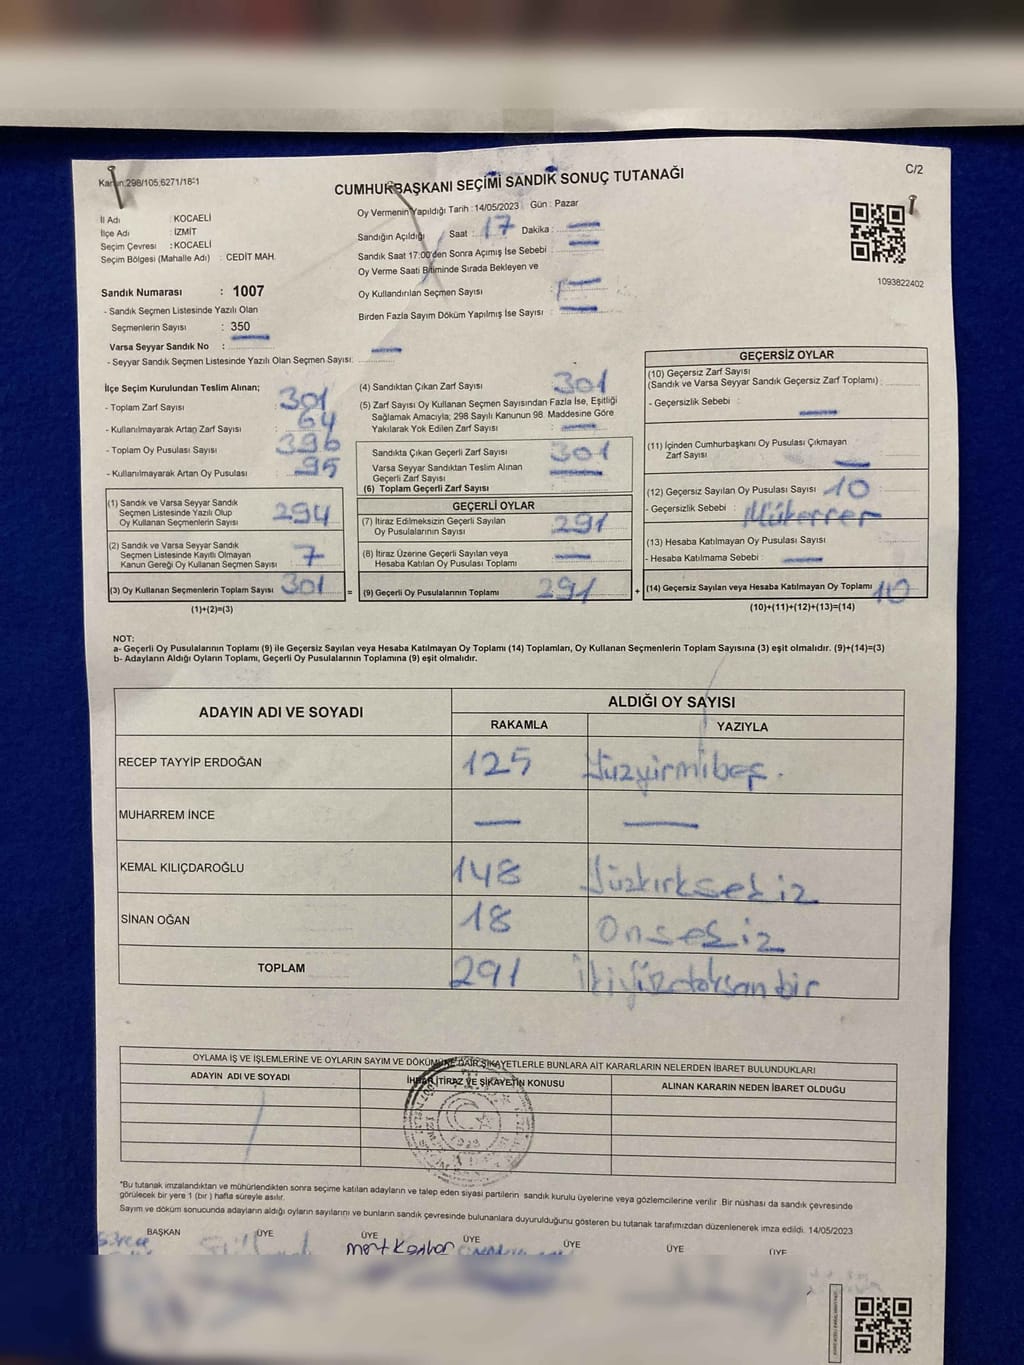 Kanun:298/105,6271/18-1
C/2
CUMHURBAŞKANI SEÇİMİ SANDIK SONUÇ TUTANAĞI
İl Adı : KOCAELİ
İlçe Adı : İZMİT
Seçim Çevresi : KOCAELİ
Seçim Bölgesi (Mahalle Adı) : CEDİT MAH.
Oy Vermenin Yapıldığı Tarih : 14/05/2023 Gün : Pazar
Sandığın Açıldığı Saat : 17 Dakika : —
Sandık Saat 17:00'den Sonra Açımış İse Sebebi : —
Oy Verme Saati Bitiminde Sırada Bekleyen ve
Oy Kullandırılan Seçmen Sayısı : —
Birden Fazla Sayım Döküm Yapılmış İse Sayısı : —
1093822402
Sandık Numarası : 1007
- Sandık Seçmen Listesinde Yazılı Olan
Seçmenlerin Sayısı : 350
Varsa Seyyar Sandık No : —
- Seyyar Sandık Seçmen Listesinde Yazılı Olan Seçmen Sayısı: —
İlçe Seçim Kurulundan Teslim Alınan;
- Toplam Zarf Sayısı : 301
- Kullanılmayarak Artan Zarf Sayısı : 64
- Toplam Oy Pusulası Sayısı : 396
- Kullanılmayarak Artan Oy Pusulası : 95
(1) Sandık ve Varsa Seyyar Sandık
Seçmen Listesinde Yazılı Olup
Oy Kullanan Seçmenlerin Sayısı 294
(2) Sandık ve Varsa Seyyar Sandık
Seçmen Listesinde Kayıtlı Olmayan
Kanun Gereği Oy Kullanan Seçmen Sayısı 7
(3) Oy Kullanan Seçmenlerin Toplam Sayısı 301
(1)+(2)=(3)
(4) Sandıktan Çıkan Zarf Sayısı : 301
(5) Zarf Sayısı Oy Kullanan Seçmen Sayısından Fazla İse, Eşitliği
Sağlamak Amacıyla; 298 Sayılı Kanunun 98. Maddesine Göre
Yakılarak Yok Edilen Zarf Sayısı : —
Sandıkta Çıkan Geçerli Zarf Sayısı : 301
Varsa Seyyar Sandıktan Teslim Alınan
Geçerli Zarf Sayısı : —
(6) Toplam Geçerli Zarf Sayısı :
GEÇERLİ OYLAR
(7) İtiraz Edilmeksizin Geçerli Sayılan
Oy Pusulalarının Sayısı : 291
(8) İtiraz Üzerine Geçerli Sayılan veya
Hesaba Katılan Oy Pusulası Toplamı : —
= (9) Geçerli Oy Pusulalarının Toplamı : 291
GEÇERSİZ OYLAR
(10) Geçersiz Zarf Sayısı
(Sandık ve Varsa Seyyar Sandık Geçersiz Zarf Toplamı) :
- Geçersizlik Sebebi : —
(11) İçinden Cumhurbaşkanı Oy Pusulası Çıkmayan
Zarf Sayısı : —
(12) Geçersiz Sayılan Oy Pusulası Sayısı : 10
- Geçersizlik Sebebi : Mükerrer
(13) Hesaba Katılmayan Oy Pusulası Sayısı :
- Hesaba Katılmama Sebebi : —
+ (14) Geçersiz Sayılan veya Hesaba Katılmayan Oy Toplamı 10
(10)+(11)+(12)+(13)=(14)
NOT:
a- Geçerli Oy Pusulalarının Toplamı (9) ile Geçersiz Sayılan veya Hesaba Katılmayan Oy Toplamı (14) Toplamları, Oy Kullanan Seçmenlerin Toplam Sayısına (3) eşit olmalıdır. (9)+(14)=(3)
b- Adayların Aldığı Oyların Toplamı, Geçerli Oy Pusulalarının Toplamına (9) eşit olmalıdır.
ADAYIN ADI VE SOYADI
ALDIĞI OY SAYISI
RAKAMLA YAZIYLA
RECEP TAYYİP ERDOĞAN 125 Yüzyirmibeş.
MUHARREM İNCE — —
KEMAL KILIÇDAROĞLU 148 Yüzkırksekiz
SİNAN OĞAN 18 Onsekiz
TOPLAM 291 İkiyüzdoksanbir
OYLAMA İŞ VE İŞLEMLERİNE VE OYLARIN SAYIM VE DÖKÜMÜNE DAİR ŞİKAYETLERLE BUNLARA AİT KARARLARIN NELERDEN İBARET BULUNDUKLARI
ADAYIN ADI VE SOYADI İHBAR, İTİRAZ VE ŞİKAYETİN KONUSU ALINAN KARARIN NEDEN İBARET OLDUĞU
1923
*Bu tutanak imzalandıktan ve mühürlendikten sonra seçime katılan adayların ve talep eden siyasi partilerin sandık kurulu üyelerine veya gözlemcilerine verilir. Bir nüshası da sandık çevresinde
görülecek bir yere 1 (bir) hafta süreyle asılır.
Sayım ve döküm sonucunda adayların aldığı oyların sayılarını ve bunların sandık çevresinde bulunanlara duyurulduğunu gösteren bu tutanak tarafımızdan düzenlenerek imza edildi. 14/05/2023
BAŞKAN ÜYE ÜYE ÜYE ÜYE ÜYE ÜYE
mert